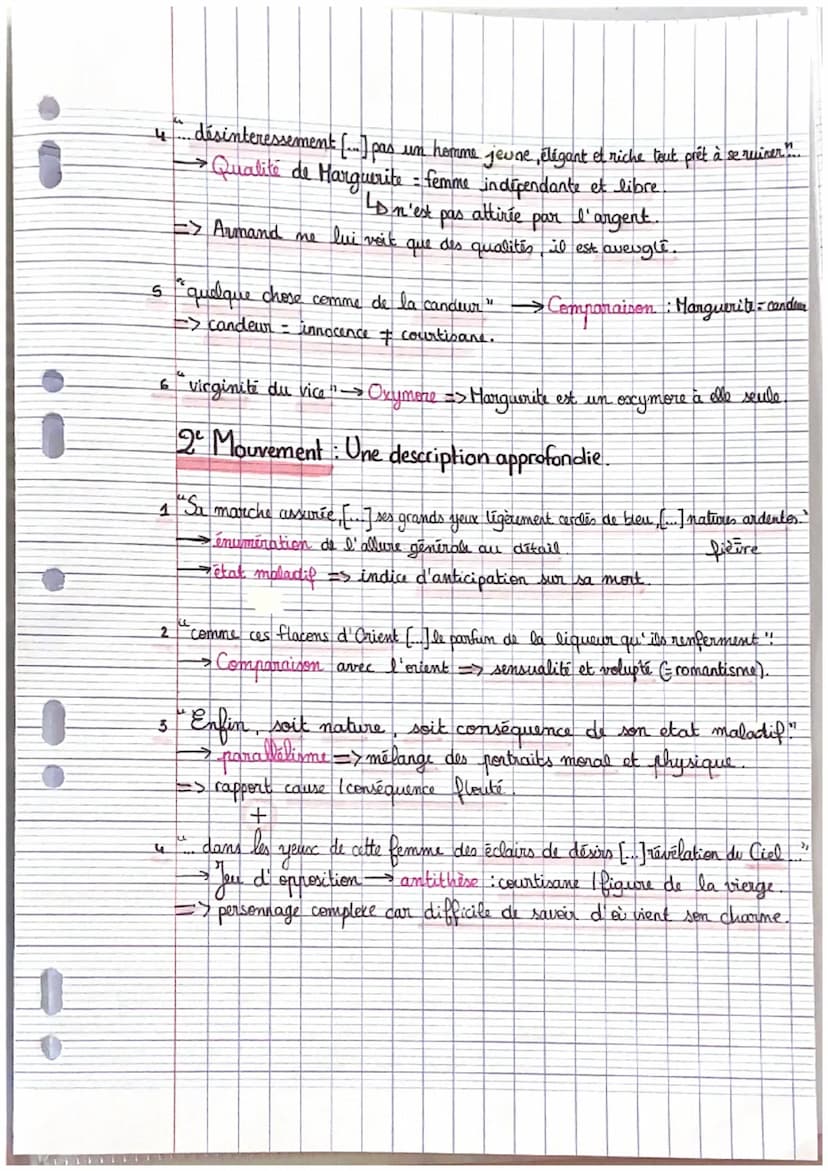 4 "... désinteressement [...] pas un homme jeune, élégant et riche tout prêt à se ruiner"...
→ Qualité de Marguerite = femme indépendante et libre.
↳ n'est pas attirée par l'argent.
=> Armand ne lui voit que des qualités, il est aveuglé.
5 "quelque chose comme de la candeur" → Comparaison : Marguerite = candeur
=> candeur = innocence ≠ courtisane.
6 "virginité du vice" → Oxymore => Marguerite est un oxymore à elle seule.
2e Mouvement : Une description approfondie.
1 "Sa marche assurée, [...] ses grands yeux légèrement cerclés de bleu, [...] natures ardentes."
→ énumération de l'allure générale au détail fièvre
→ état maladif => indice d'anticipation sur sa mort.
2 "comme ces flacens d'Orient [...] le parfum de la liqueur qu'ils renferment".
→ Comparaison avec l'orient => sensualité et volupté (= romantisme).
3 "Enfin, soit nature, soit conséquence de son etat maladif".
→ parallélisme => mélange des portraits moral et physique.
=> rapport cause / conséquence flouté.
+
4 "... dans les yeux de cette femme des éclairs de désirs [...] révélation du Ciel ..."
→ Jeu d'opposition → antithèse : courtisane / figure de la vierge.
=> personnage complexe car difficile de savoir d'où vient son charme.